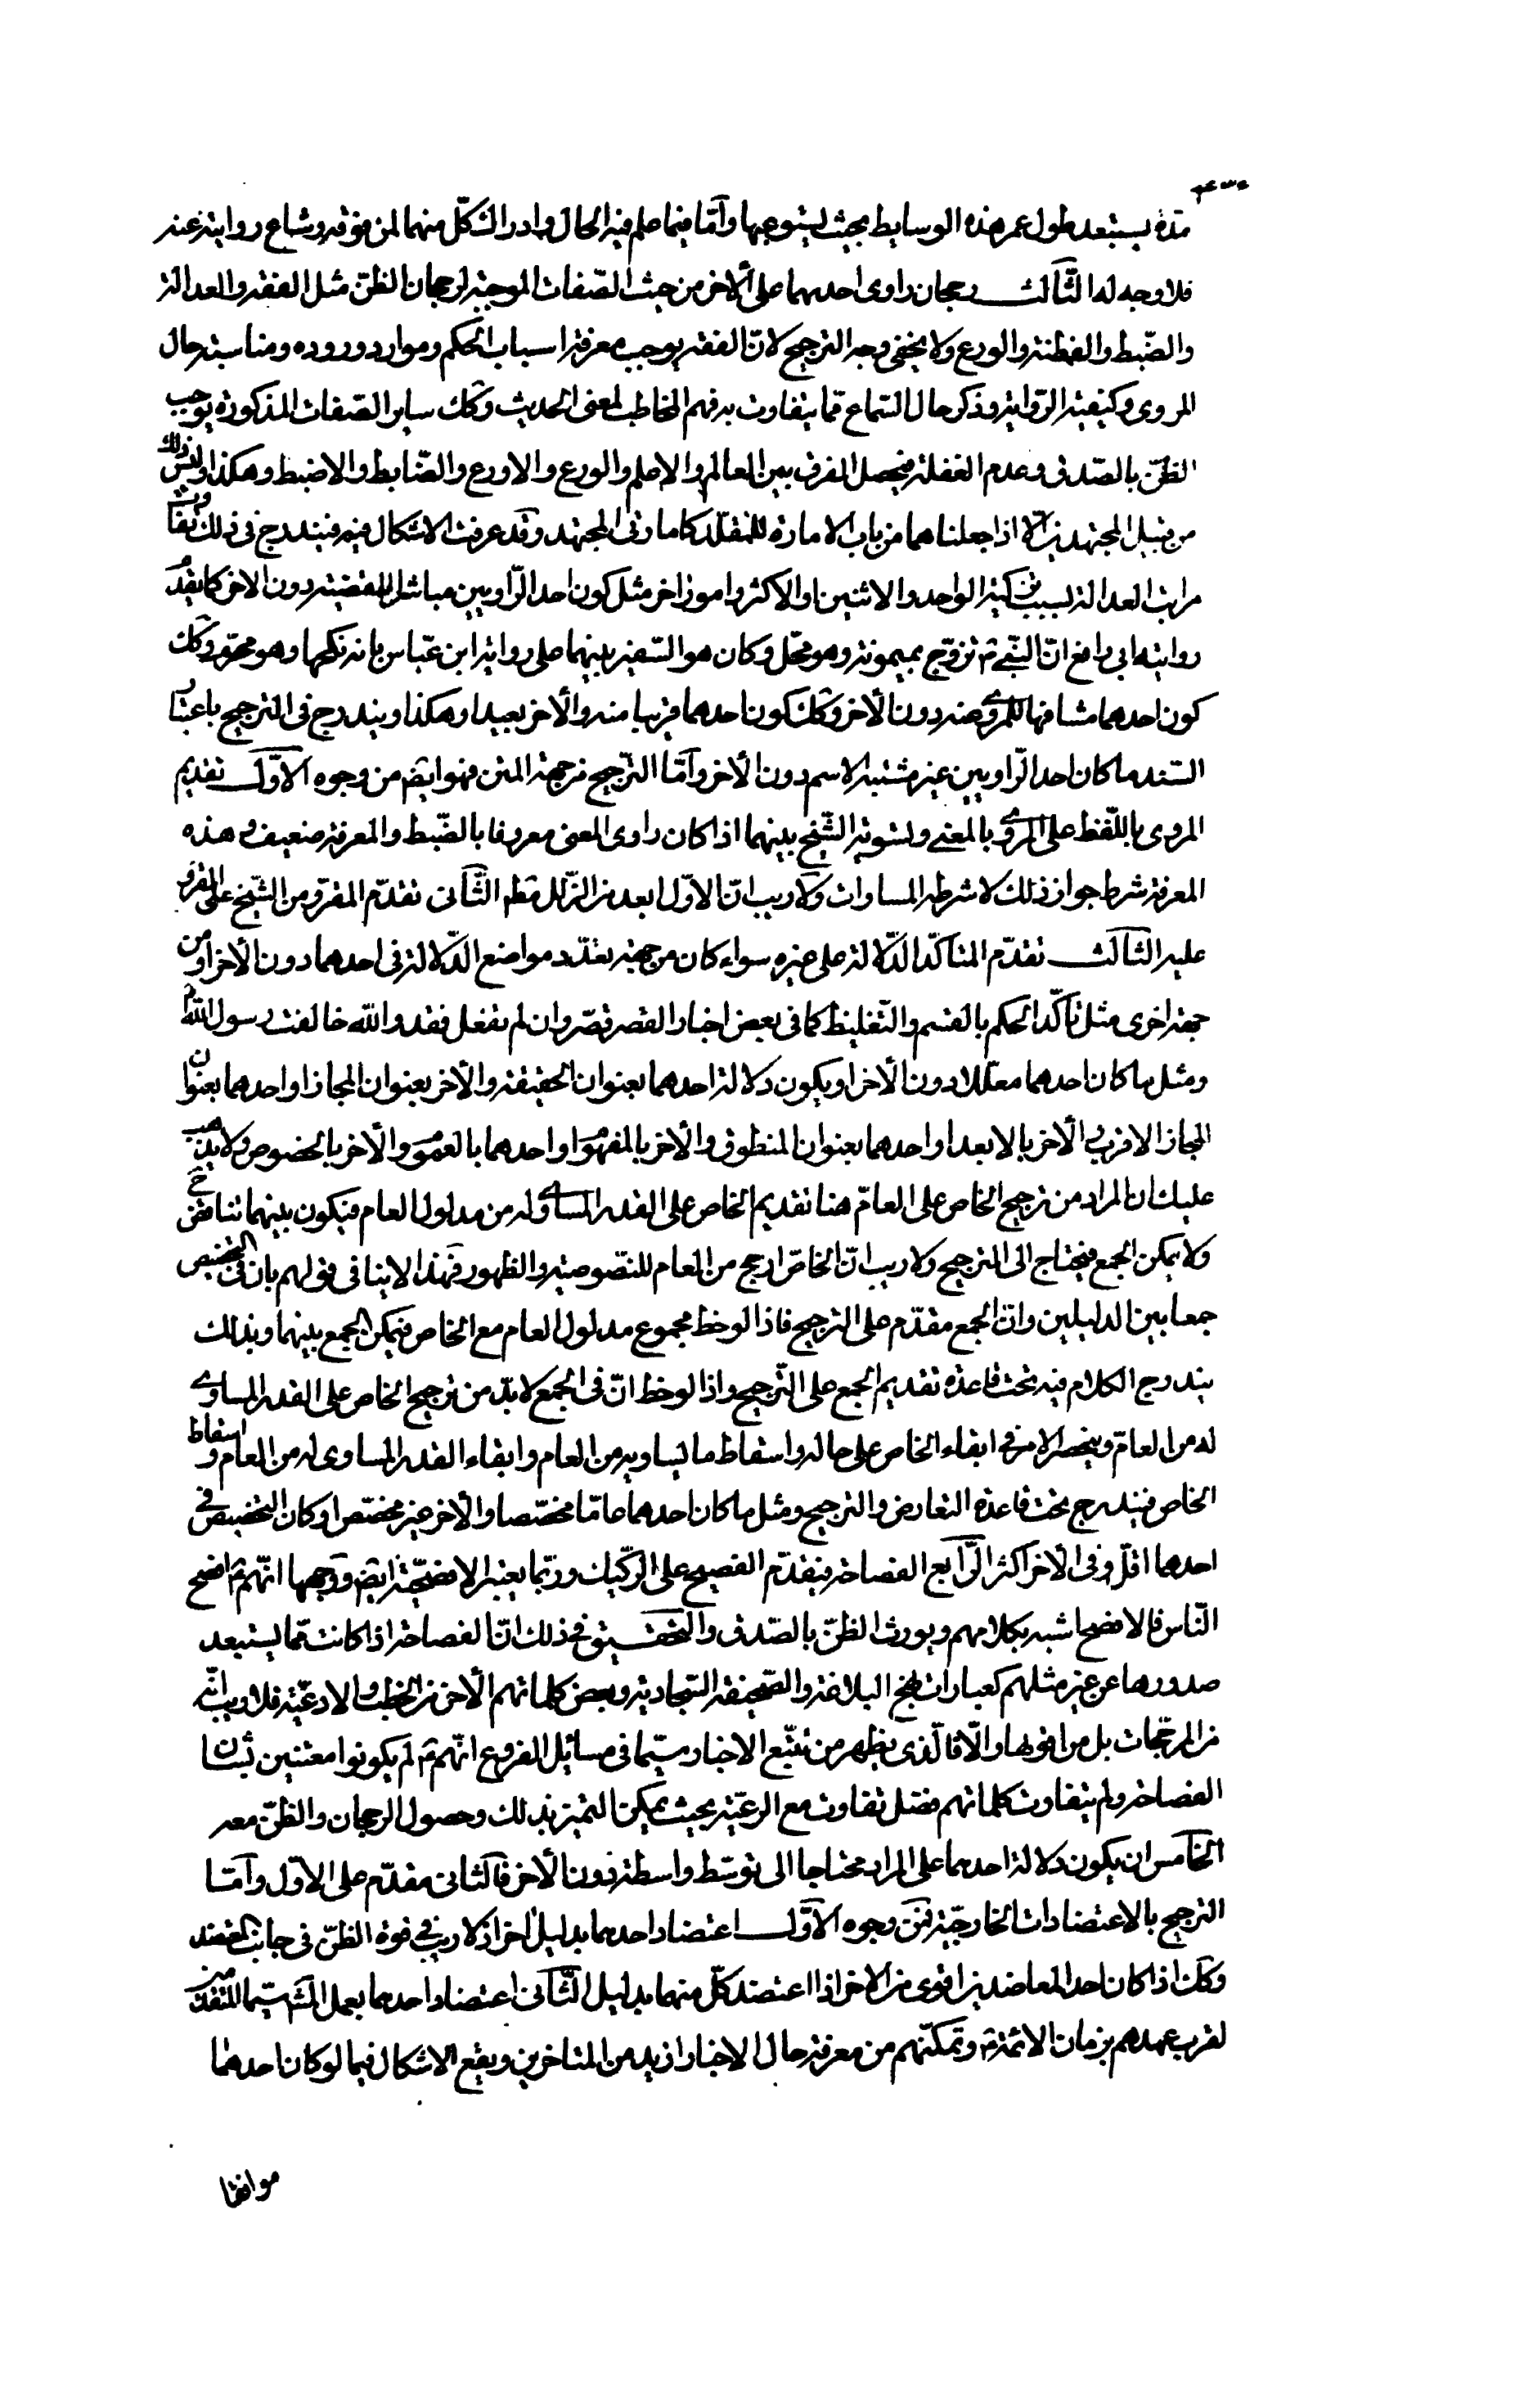 مدة يستبعد طول عمر هذه الوسايط بحيث يستوعبها وأمّا فيما علم فيه الحال وادراك كلّ منهما لمن فوقه وشاع روايته عنه
فلا وجه له الثّالث رجحان راوى احدهما على الاخر من حيث الصّفات الموجبة لرجحان الظنّ مثل الفقه والعدالة
والضّبط والفطنة والورع ولا يخفى وجه الترجيح لانّ الفقه يوجب معرفة اسباب الحكم وموارد وروده ومناسبة حال
المروى وكيفيّة الرّواية وذكر حال السّماع ممّا يتفاوت به فهم المخاطب لمعنى الحديث وكك ساير الصّفات المذكورة يوجب
الظنّ بالصّدق وعدم الغفلة فيحصل الفرق بين العالم والاعلم والورع والاورع والضّابط والاضبط وهكذا وليس ذلك
من قبيل المجتهدين الّا اذا جعلناهما من باب الامارة للمقلّد كامارتى المجتهد وقد عرفت الاشكال فيه فيندرج فى ذلك تفاوت
مراتب العدالة بسبب تزكية الواحد والاثنين او الاكثر وامور اخر مثل كون احد الرّاويين مباشرا للقضيّة دون الاخر كما يقدّم
رواية ابى رافع انّ النّبىّ ص تزوّج بميمونة وهو محلّ وكان هو السّفير بينهما على رواية ابن عبّاس بانه نكحها وهو محرم وكك
كون احدهما مشافها للمروى عنه دون الاخر وكك كون احدهما قريبا منه والاخر بعيدا وهكذا ويندرج فى الترجيح باعتبار
السّند ما كان احد الرّاويين غير مشتبه الاسم دون الاخر وأمّا الترجيح من جهة المتن فهو ايضم من وجوه الاوّل تقديم
المروى باللّفظ على المروى بالمعنى وتسوية الشّيخ بينهما اذا كان راوى المعنى معروفا بالضّبط والمعرفة ضعيف و هذه
المعرفة شرط جواز ذلك لا شرط المساوات ولا ريب انّ الاوّل ابعد من الزّلل قطم الثّانى تقدّم المقرّو من الشّيخ على المقرو
عليه الثّالث تقدّم المتأكّد الدّلالة على غيره سواء كان من جهة تعدّد مواضع الدّلالة فى احدهما دون الاخر او من
جهة اخرى مثل تأكّد الحكم بالقسم والتّغليظ كما فى بعض اخبار القصر قصّر وان لم تفعل فقد والله خالفت رسول الله ص
ومثل ما كان احدهما معلّلا دون الاخر او يكون دلالة احدهما بعنوان الحقيقة والاخر بعنوان المجاز او احدهما بعنوان
المجاز الاقرب والاخر بالابعد او احدهما بعنوان المنطوق والاخر بالمفهوم او احدهما بالعموم والاخر بالخصوص ولا يذهب
عليك ان المراد من ترجيح الخاص على العامّ هنا تقديم الخاص على القدر المساوى له من مدلول العام فيكون بينهما تناقض ح
ولا يمكن الجمع فيحتاج الى الترجيح ولا ريب انّ الخاصّ ارجح من العام للنّصوصيّة والظهور فهذا لا ينافى قولهم بان فى التخصيص
جمعا بين الدليلين وانّ الجمع مقدّم على الترجيح فاذا لوحظ مجموع مدلول العام مع الخاص فيمكن الجمع بينهما وبذلك
يندرج الكلام فيه تحت قاعدة تقديم الجمع على التّرجيح واذا لوحظ انّ فى الجمع لا بدّ من ترجيح الخاص على القدر المساوى
له من العامّ وينحصر الامر فى ابقاء الخاص على حاله واسقاط ما يساويه من العام وابقاء القدر المساوى له من العام واسقاط
الخاص فيندرج تحت قاعدة التعارض والترجيح ومثل ما كان احدهما عامّا مخصّصا والاخر غير مخصّص او كان التخصيص فى
احدهما اقلّ وفى الاخر اكثر الرّابع الفصاحة فيقدّم الفصيح على الرّكيك وربّما يعتبر الافصحيّة ايضم ووجهها انّهم ع افصح
النّاس فالافصح اشبه بكلامهم ويورث الظنّ بالصّدق والتّحقيق فى ذلك انّ الفصاحة اذا كانت ممّا يستبعد
صدورها عن غير مثلهم كعبارات نهج البلاغة والصّحيفة السّجادية وبعض كلماتهم الاخر من الخطب والادعيّة فلا ريب انّه
من المرجّحات بل من اقواها والّا فالّذى يظهر من تتبّع الاخبار سيّما فى مسائل الفروع انّهم ع لم يكونوا معتنين بشأن
الفصاحة ولم يتفاوت كلماتهم فضل تفاوت مع الرعيّة بحيث يمكن التميز بذلك وحصول الرجحان والظنّ معه
الخامس ان يكون دلالة احدهما على المراد محتاجا الى توسّط واسطة دون الاخر فالثانى مقدّم على الاوّل وأمّا
الترجيح بالاعتضادات الخارجيّة فمن وجوه الاوّل اعتضاد احدهما بدليل اخر اذ لا ريب فى قوة الظنّ فى جانب المعتضد
وكك اذا كان احد المعاضدين اقوى من الاخر اذا اعتضد كلّ منهما بدليل الثّانى اعتضاد احدهما بعمل المش سيّما المتقدّمين
لقرب عهدهم بزمان الائمّة ع وتمكّنهم من معرفة حال الاخبار ازيد من المتاخرين ويقع الاشكال فيما لو كان احدهما
موافقا